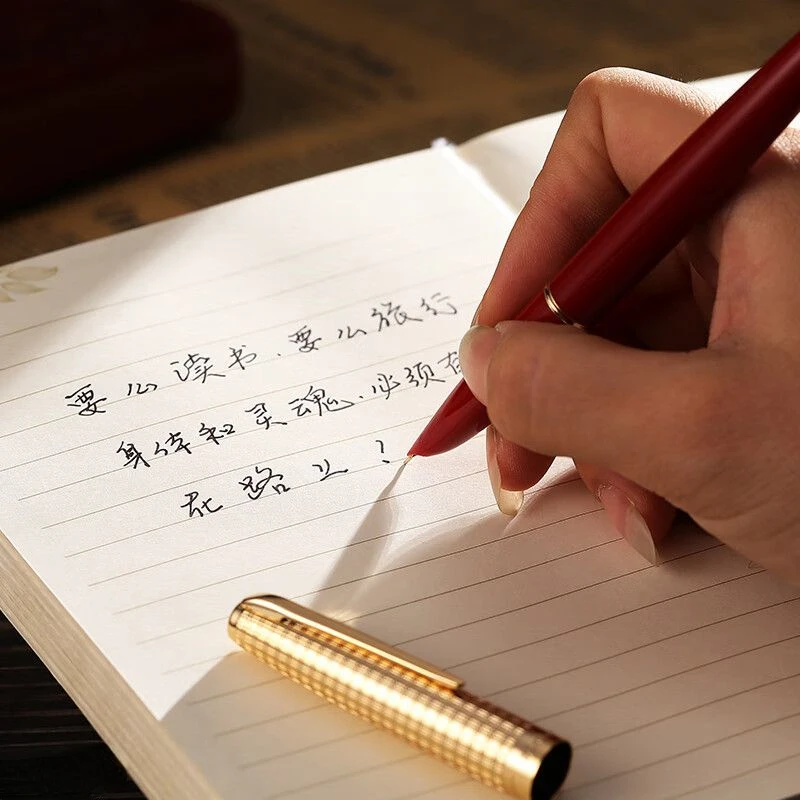 要么读书.要么旅行
身体和灵魂.必须有
在路上？